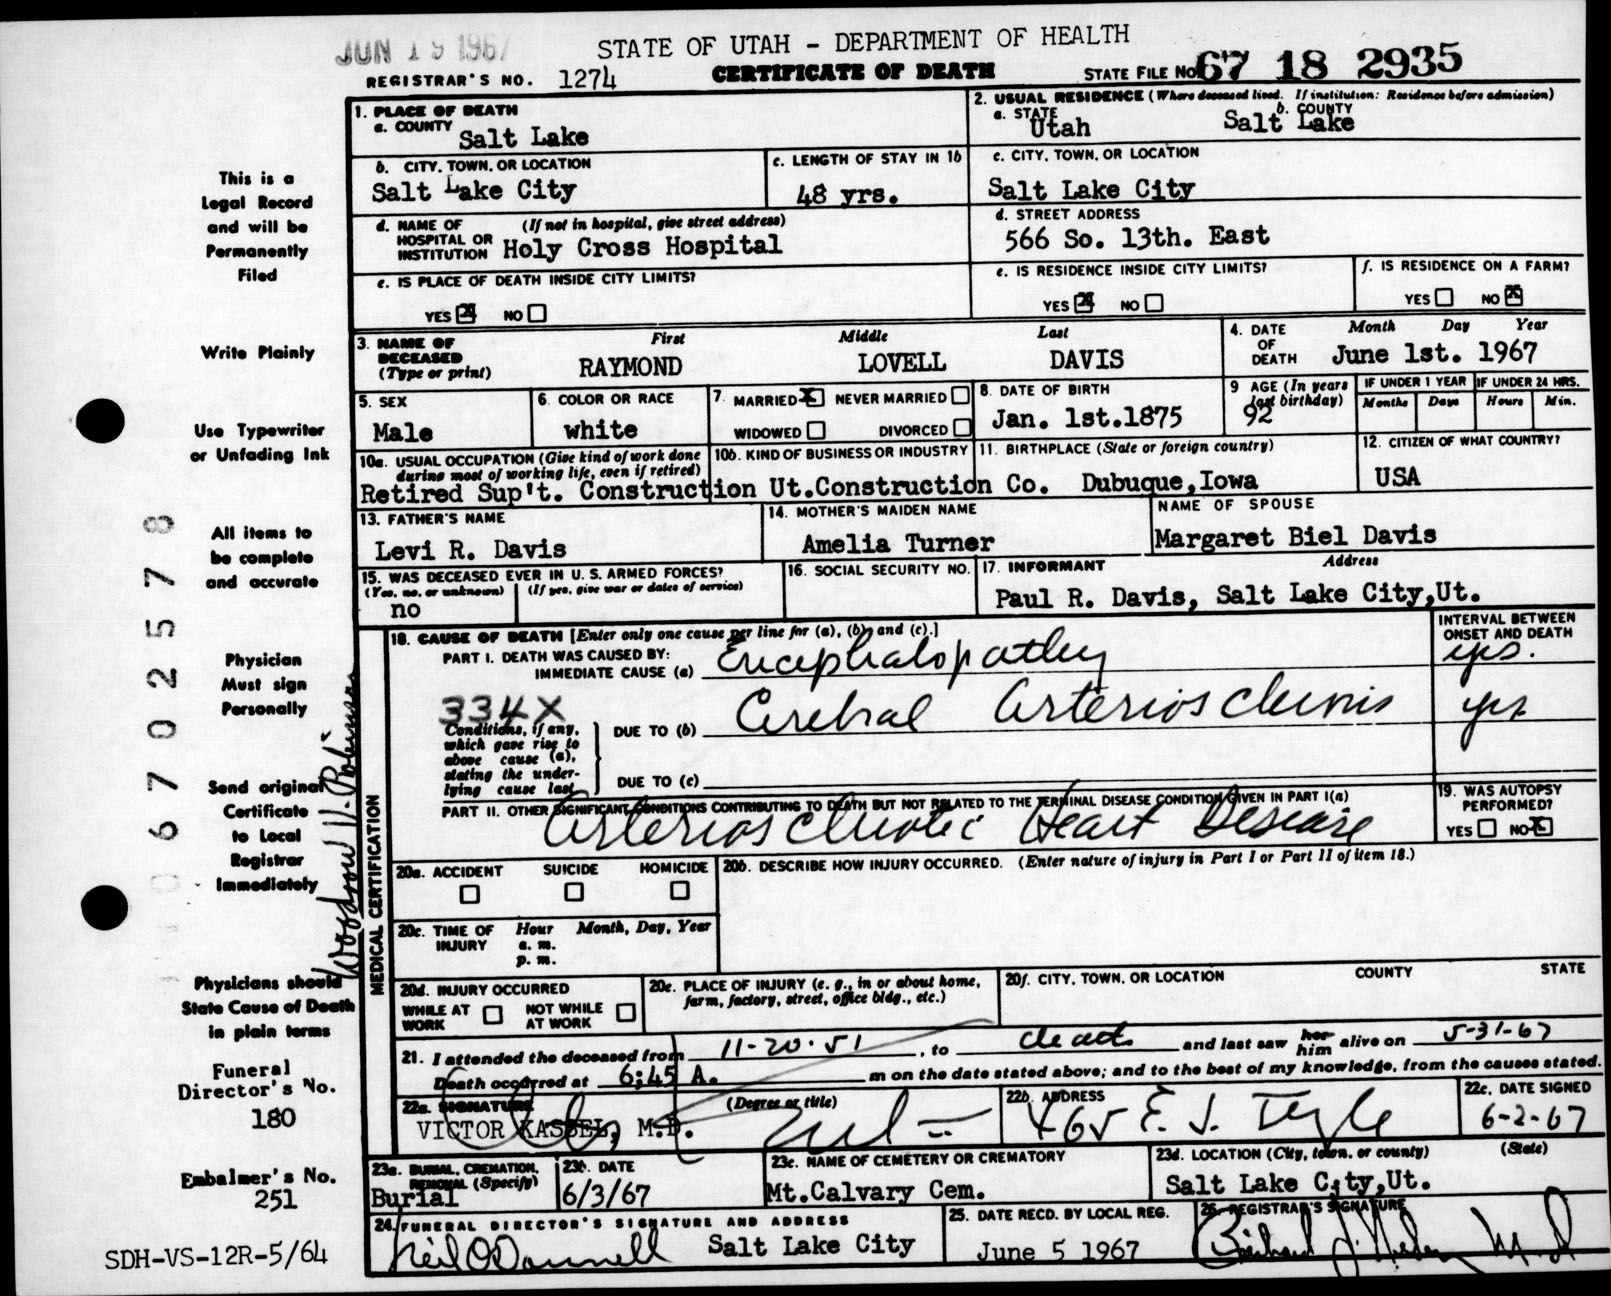 JUN 19 1967
STATE OF UTAH - DEPARTMENT OF HEALTH
REGISTRAR'S NO. 1274 CERTIFICATE OF DEATH STATE FILE NO. 67 18 2935
1. PLACE OF DEATH
a. COUNTY
Salt Lake
2. USUAL RESIDENCE (Where deceased lived. If institution: Residence before admission)
a. STATE b. COUNTY
Utah Salt Lake
b. CITY, TOWN, OR LOCATION
Salt Lake City
c. LENGTH OF STAY IN 1b
48 yrs.
c. CITY, TOWN, OR LOCATION
Salt Lake City
d. NAME OF HOSPITAL OR INSTITUTION (If not in hospital, give street address)
Holy Cross Hospital
d. STREET ADDRESS
566 So. 13th. East
e. IS PLACE OF DEATH INSIDE CITY LIMITS?
YES X NO
e. IS RESIDENCE INSIDE CITY LIMITS?
YES X NO
f. IS RESIDENCE ON A FARM?
YES NO X
3. NAME OF DECEASED (Type or print)
First Middle Last
RAYMOND LOVELL DAVIS
4. DATE OF DEATH
Month Day Year
June 1st. 1967
5. SEX
Male
6. COLOR OR RACE
white
7. MARRIED X NEVER MARRIED
WIDOWED DIVORCED
8. DATE OF BIRTH
Jan. 1st.1875
9 AGE (In years last birthday)
92
IF UNDER 1 YEAR
Months Days
IF UNDER 24 HRS.
Hours Min.
10a. USUAL OCCUPATION (Give kind of work done during most of working life, even if retired)
Retired Sup't. Construction
10b. KIND OF BUSINESS OR INDUSTRY
Ut.Construction Co.
11. BIRTHPLACE (State or foreign country)
Dubuque,Iowa
12. CITIZEN OF WHAT COUNTRY?
USA
13. FATHER'S NAME
Levi R. Davis
14. MOTHER'S MAIDEN NAME
Amelia Turner
NAME OF SPOUSE
Margaret Biel Davis
15. WAS DECEASED EVER IN U. S. ARMED FORCES?
(Yes, no, or unknown) (If yes, give war or dates of service)
no
16. SOCIAL SECURITY NO.
17. INFORMANT Address
Paul R. Davis, Salt Lake City,Ut.
18. CAUSE OF DEATH [Enter only one cause per line for (a), (b) and (c).]
INTERVAL BETWEEN ONSET AND DEATH
PART I. DEATH WAS CAUSED BY:
IMMEDIATE CAUSE (a) Encephalopathy yrs.
334X
Conditions, if any, which gave rise to above cause (a), stating the underlying cause last
DUE TO (b) Cerebral Arteriosclerosis yrs
DUE TO (c)
PART II. OTHER SIGNIFICANT CONDITIONS CONTRIBUTING TO DEATH BUT NOT RELATED TO THE TERMINAL DISEASE CONDITION GIVEN IN PART I(a)
Arteriosclerotic Heart Disease
19. WAS AUTOPSY PERFORMED?
YES NO X
MEDICAL CERTIFICATION
20a. ACCIDENT SUICIDE HOMICIDE
20b. DESCRIBE HOW INJURY OCCURRED. (Enter nature of injury in Part I or Part II of item 18.)
20c. TIME OF INJURY Hour Month, Day, Year
a. m.
p. m.
20d. INJURY OCCURRED
WHILE AT WORK NOT WHILE AT WORK
20e. PLACE OF INJURY (e. g., in or about home, farm, factory, street, office bldg., etc.)
20f. CITY, TOWN, OR LOCATION COUNTY STATE
21. I attended the deceased from 11-20-51, to death and last saw her him alive on 5-31-67
Death occurred at 6:45 A. m on the date stated above; and to the best of my knowledge, from the causes stated.
22a. SIGNATURE (Degree or title)
VICTOR KASSEL, M.D.
22b. ADDRESS
465 E. S. Temple
22c. DATE SIGNED
6-2-67
23a. BURIAL, CREMATION, REMOVAL (Specify)
Burial
23b. DATE
6/3/67
23c. NAME OF CEMETERY OR CREMATORY
Mt.Calvary Cem.
23d. LOCATION (City, town, or county) (State)
Salt Lake City,Ut.
24. FUNERAL DIRECTOR'S SIGNATURE AND ADDRESS
Neil O'Donnell Salt Lake City
25. DATE RECD. BY LOCAL REG.
June 5 1967
26. REGISTRAR'S SIGNATURE
This is a
Legal Record
and will be
Permanently
Filed
Write Plainly
Use Typewriter
or Unfading Ink
All items to
be complete
and accurate
Physician
Must sign
Personally
Send original
Certificate
to Local
Registrar
Immediately
Physicians should
State Cause of Death
in plain terms
Funeral
Director's No.
180
Embalmer's No.
251
SDH-VS-12R-5/64